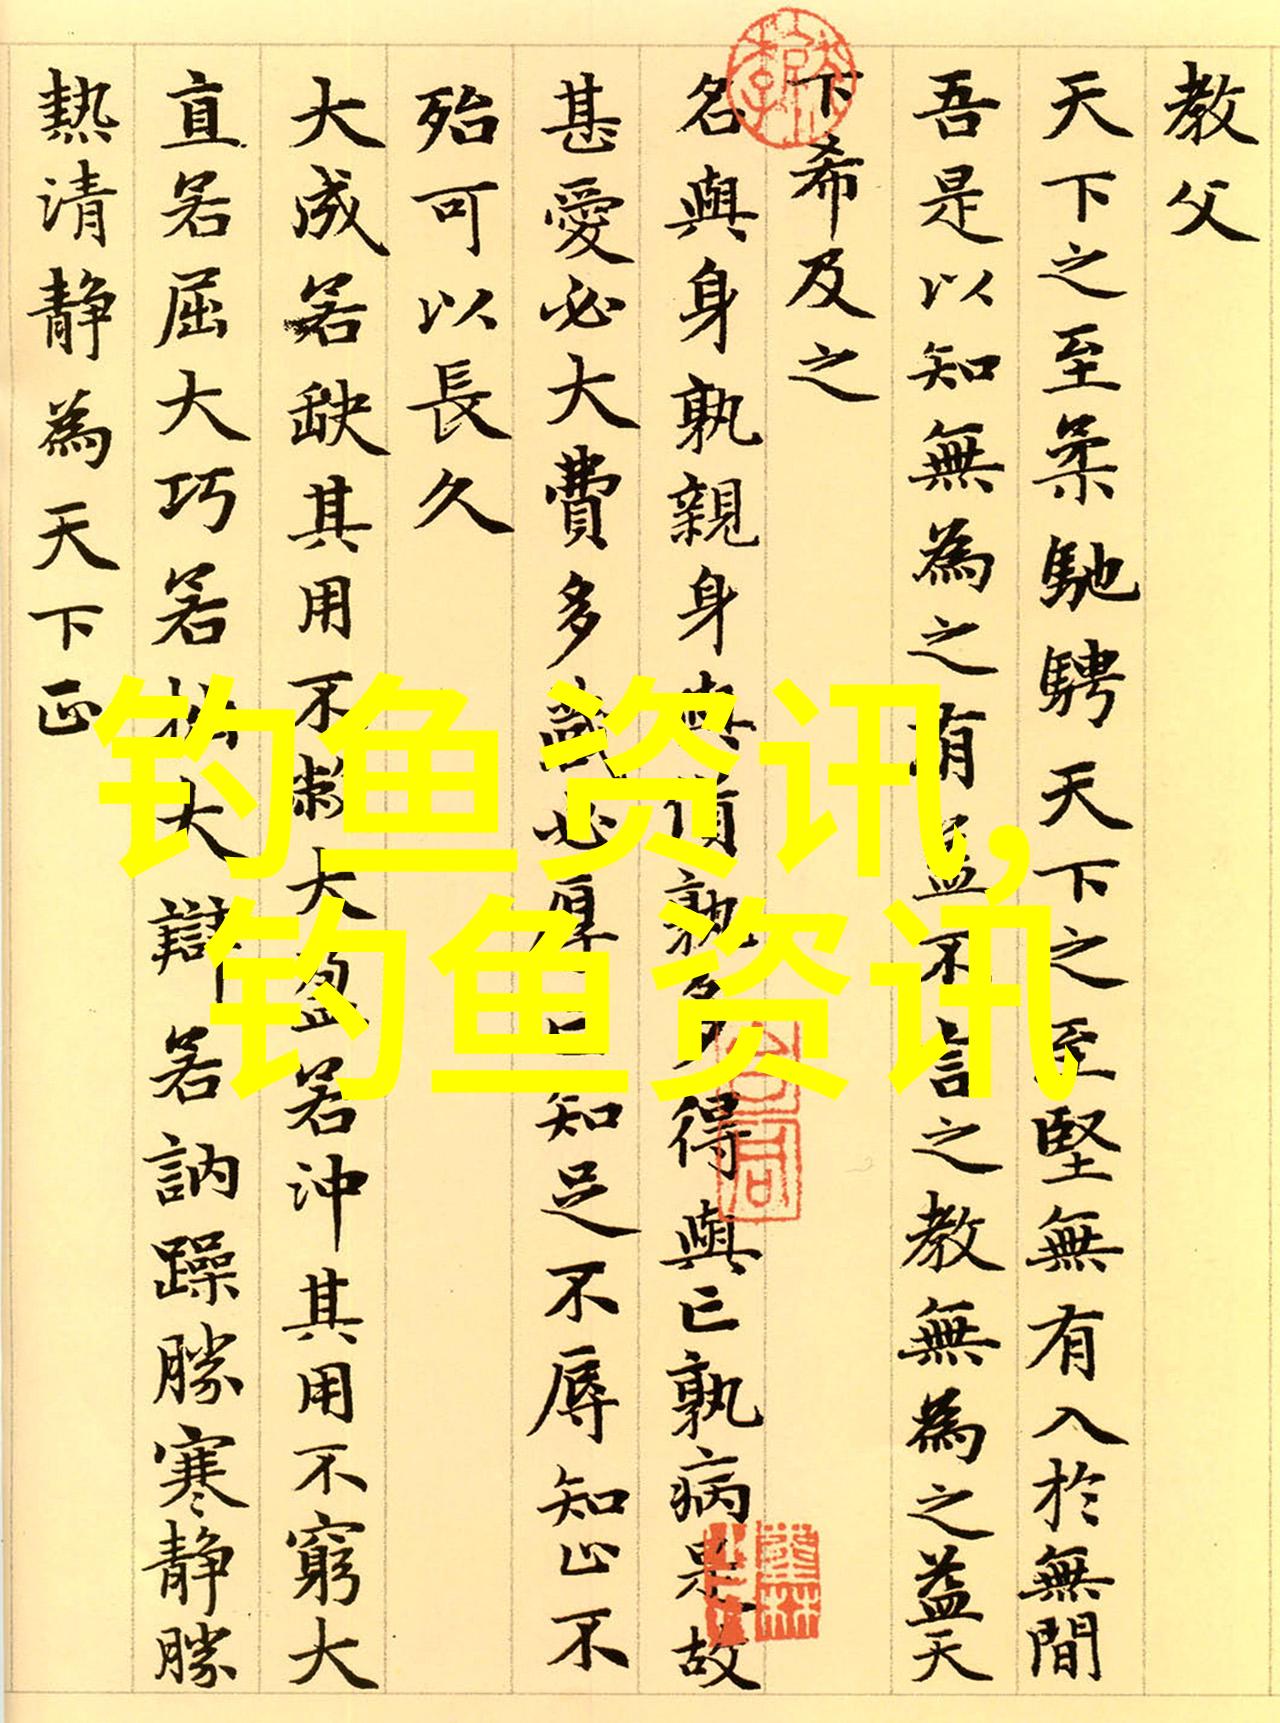 教父
天下之至柔馳騁天下之至堅無有入於無間
吾是以知無為之有益不言之教無為之益天
下希及之
名與身孰親身與貨孰多得與亡孰病是故
甚愛必大費多藏必厚亡知足不辱知止不
殆可以長久
大成若缺其用不弊大盈若沖其用不窮大
直若屈大巧若拙大辯若訥躁勝寒静勝
熱清静為天下正
钓鱼资讯,
钓鱼资讯